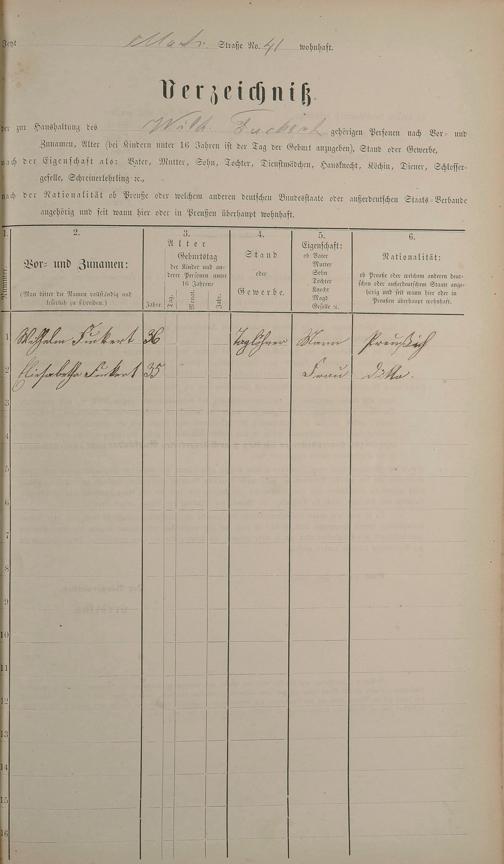 Jetzt Straße No. 41 wohnhaft.
Verzeichniß.
der zur Haushaltung des Wilh. gehörigen Personen nach Vor- und
Zunamen, Alter (bei Kindern unter 16 Jahren ist der Tag der Geburt anzugeben), Stand oder Gewerbe,
nach der Eigenschaft als: Vater, Mutter, Sohn, Tochter, Dienstmädchen, Hausknecht, Köchin, Diener, Schlosser-
geselle, Schreinerlehrling ꝛc.,
nach der Nationalität ob Preuße oder welchem anderen deutschen Bundesstaate oder außerdeutschen Staats-Verbande
angehörig und seit wann hier oder in Preußen überhaupt wohnhaft.
1. 2. 3. 4. 5. 6.
Nummer.
Vor- und Zunamen:
(Man bittet die Namen vollständig und
leserlich zu schreiben.)
Alter
Geburtstag
der Kinder und an-
derer Personen unter
16 Jahren:
Jahre. Tag. Monat. Jahr.
Stand
oder
Gewerbe.
Eigenschaft:
ob Vater
Mutter
Sohn
Tochter
Knecht
Magd
Geselle ꝛc.
Nationalität:
ob Preuße oder welchem anderen deut-
schen oder außerdeutschen Staate ange-
hörig und seit wann hier oder in
Preußen überhaupt wohnhaft.
1 Wilhelm Finkert 36 Taglöhner Mann Preußisch
2 Elisabetha Finkert 35 Frau ditto.
3
4
5
6
7
8
9
10
11
12
13
14
15
16